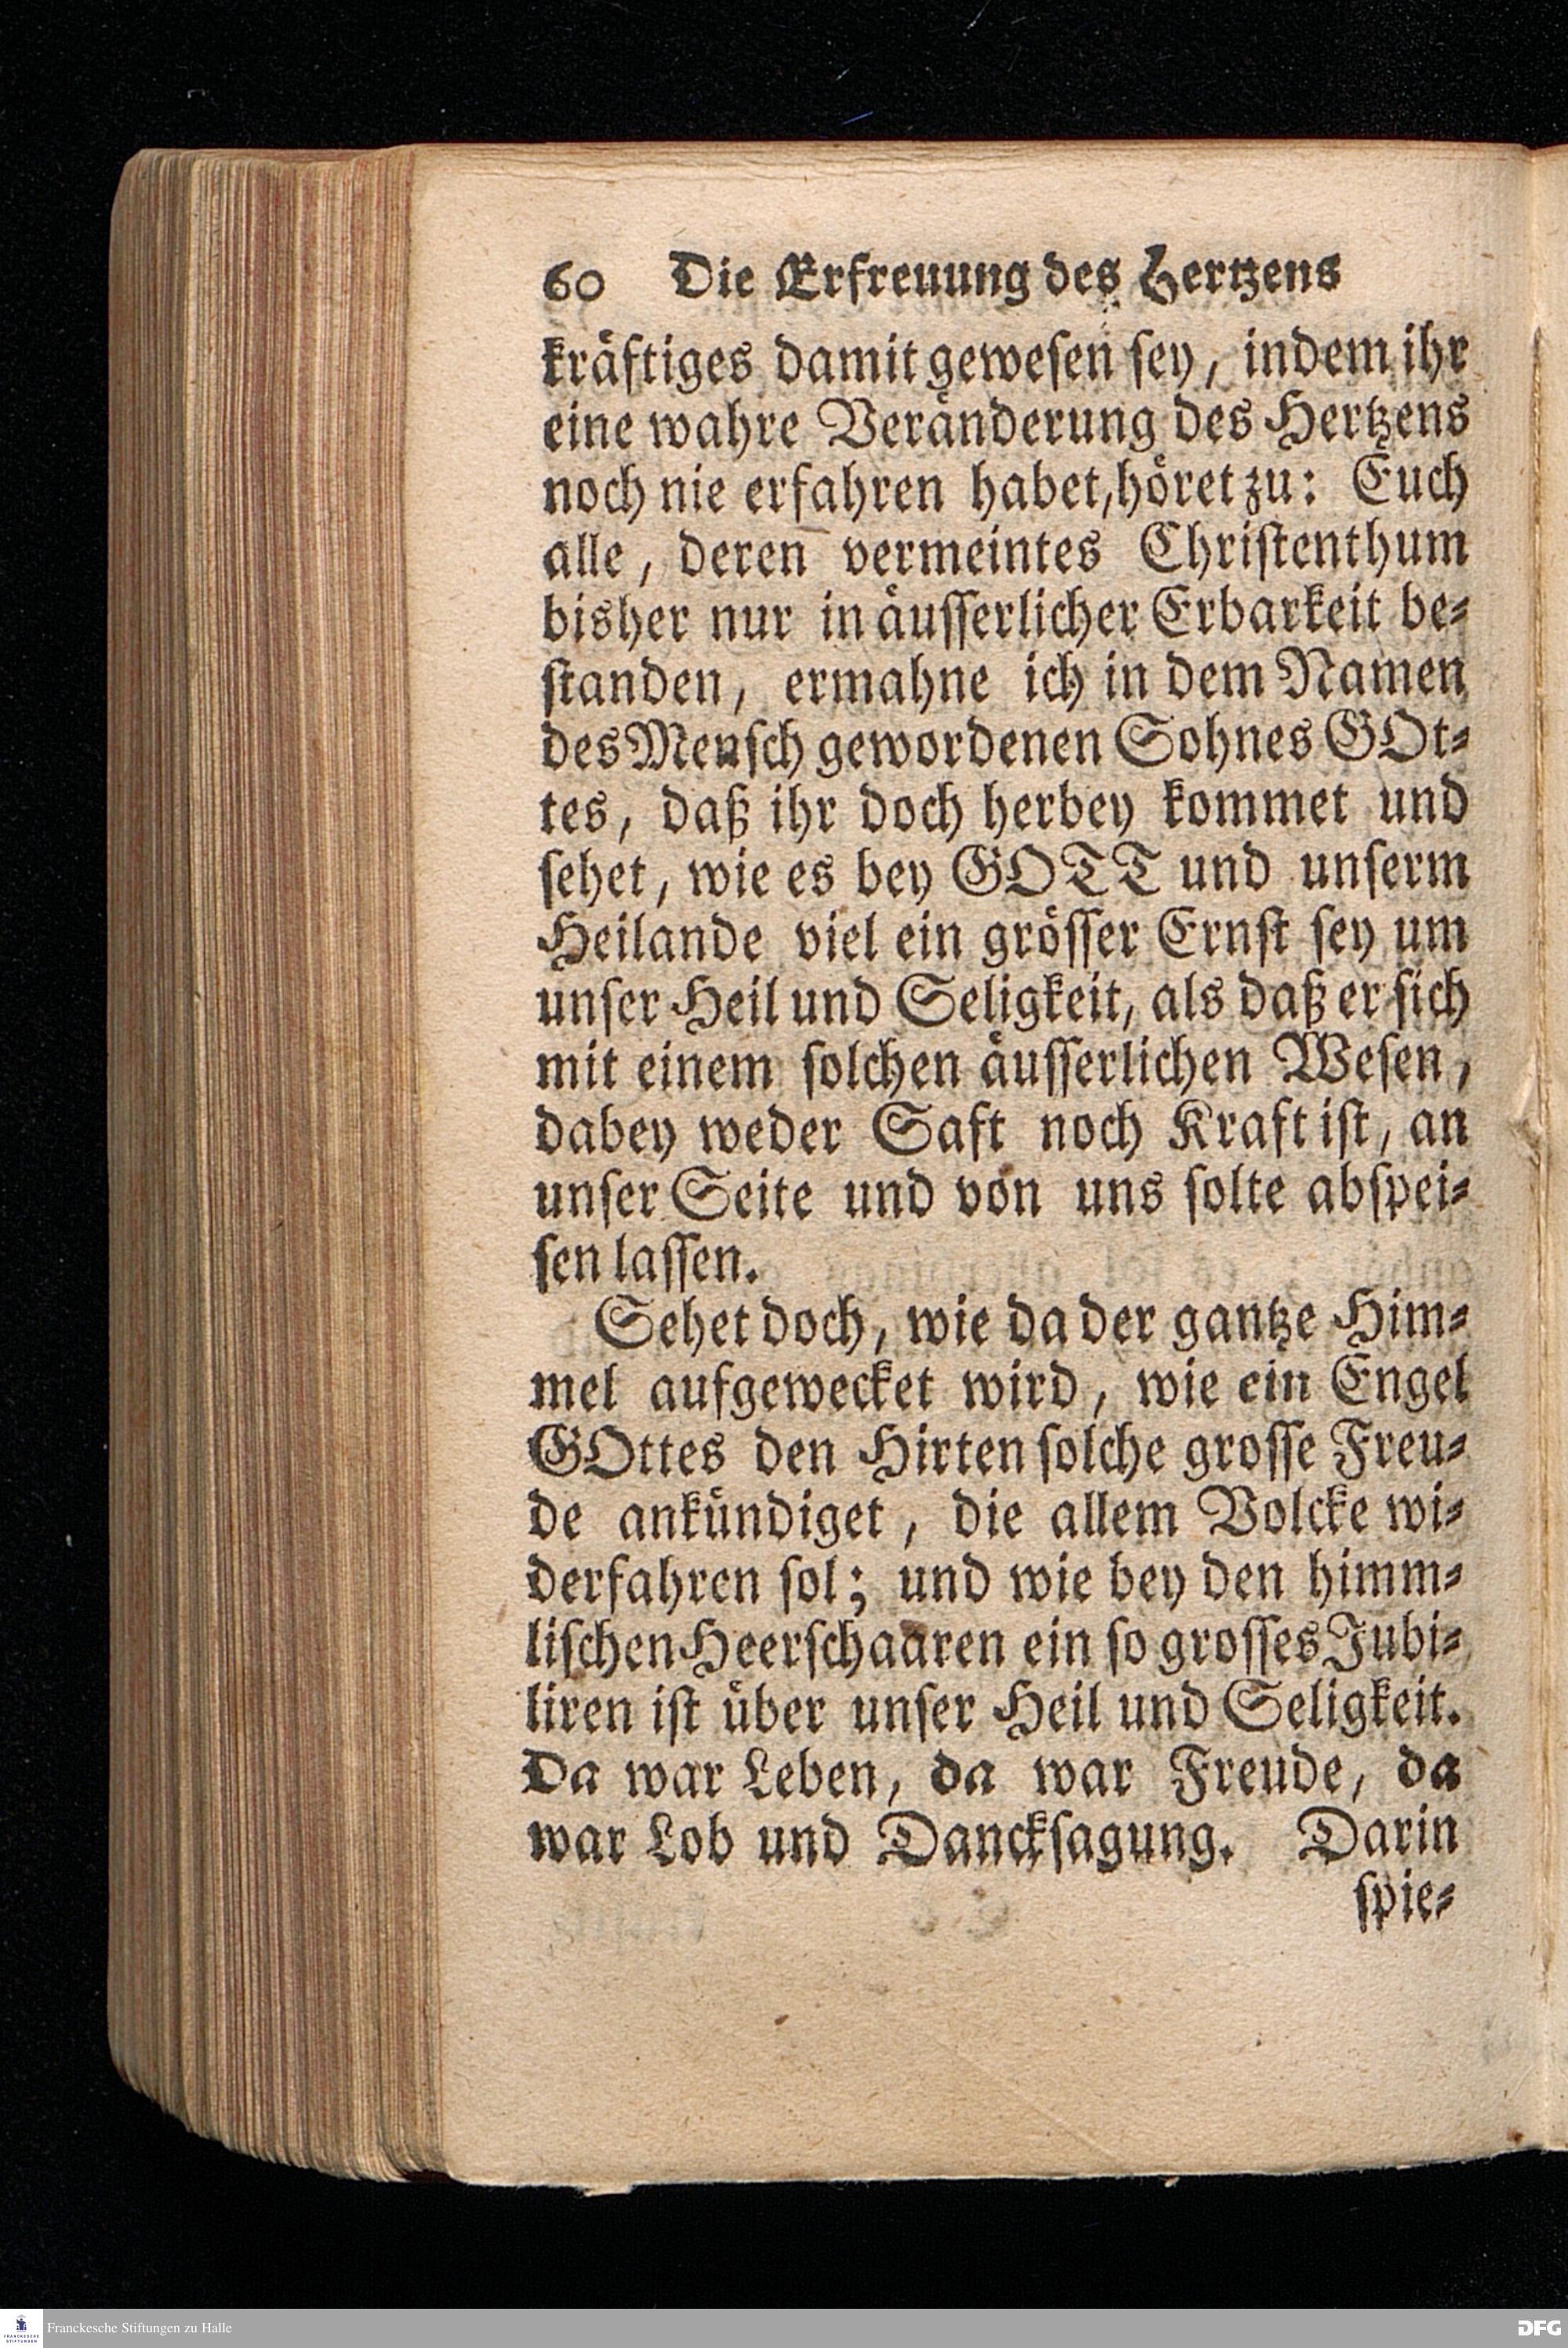 60 Die Erfreuung des Hertzens
kräftiges damit gewesen sey, indem ihr
eine wahre Veränderung des Hertzens
noch nie erfahren habet, höret zu: Euch
alle, deren vermeintes Christenthum
bisher nur in äusserlicher Erbarkeit be-
standen, ermahne ich in dem Namen
des Mensch gewordenen Sohnes GOt-
tes, daß ihr doch herbey kommet und
sehet, wie es bey GOTT und unserm
Heilande viel ein grösser Ernst sey um
unser Heil und Seligkeit, als daß er sich
mit einem solchen äusserlichen Wesen,
dabey weder Saft noch Kraft ist, an
unser Seite und von uns solte abspei-
sen lassen.
Sehet doch, wie da der gantze Him-
mel aufgewecket wird, wie ein Engel
GOttes den Hirten solche grosse Freu-
de ankündiget, die allem Volcke wi-
derfahren sol; und wie bey den himm-
lischen Heerschaaren ein so grosses Jubi-
liren ist über unser Heil und Seligkeit.
Da war Leben, da war Freude, da
war Lob und Dancksagung. Darin
spie-
FRANCKESCHE STIFTUNGEN
Franckesche Stiftungen zu Halle
DFG